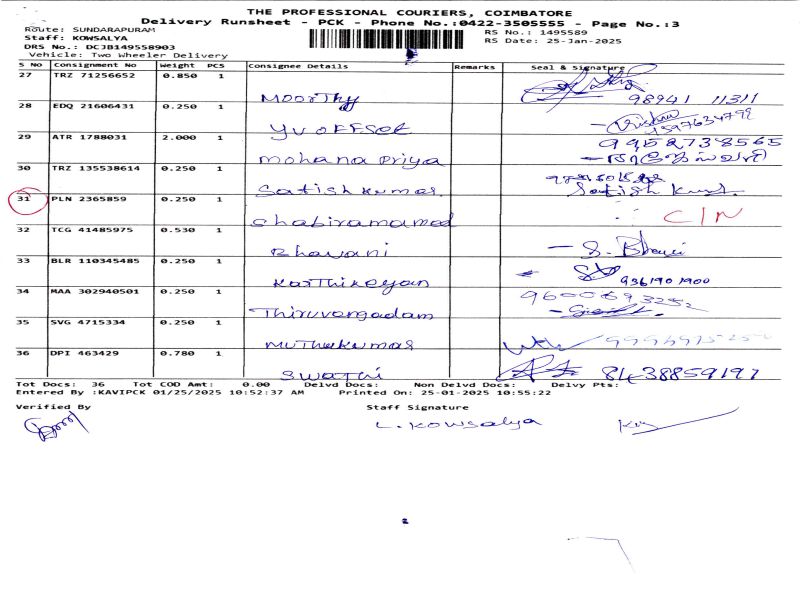 THE PROFESSIONAL COURIERS, COIMBATORE
Delivery Runsheet - PCK - Phone No.:0422-3505555 - Page No.:3
Route: SUNDARAPURAM RS No.: 1495589
Staff: KOWSALYA RS Date: 25-Jan-2025
DRS No.: DCJB149558903
Vehicle: Two Wheeler Delivery
S No Consignment No Weight PCS Consignee Details Remarks Seal & Signature
27 TRZ 71256652 0.850 1
Moorthy 98941 11311
28 EDQ 21606431 0.250 1
YV OFFSet
29 ATR 1788031 2.000 1 9952738565
Mohana Priya
30 TRZ 135538614 0.250 1
Satish Kumar.
31 PLN 2365859 0.250 1 C/N
Shabiramamed
32 TCG 41485975 0.530 1
Bhavani
33 BLR 110345485 0.250 1
Karthikeyan 9361901900
34 MAA 302940501 0.250 1 9600693252
Thiruvengadam
35 SVG 4715334 0.250 1
Muthukumar
36 DPI 463429 0.780 1
Swathi 8438859197
Tot Docs: 36 Tot COD Amt: 0.00 Delvd Docs: Non Delvd Docs: Delvy Pts:
Entered By :KAVIPCK 01/25/2025 10:52:37 AM Printed On: 25-01-2025 10:55:22
Verified By Staff Signature
L. Kowsalya